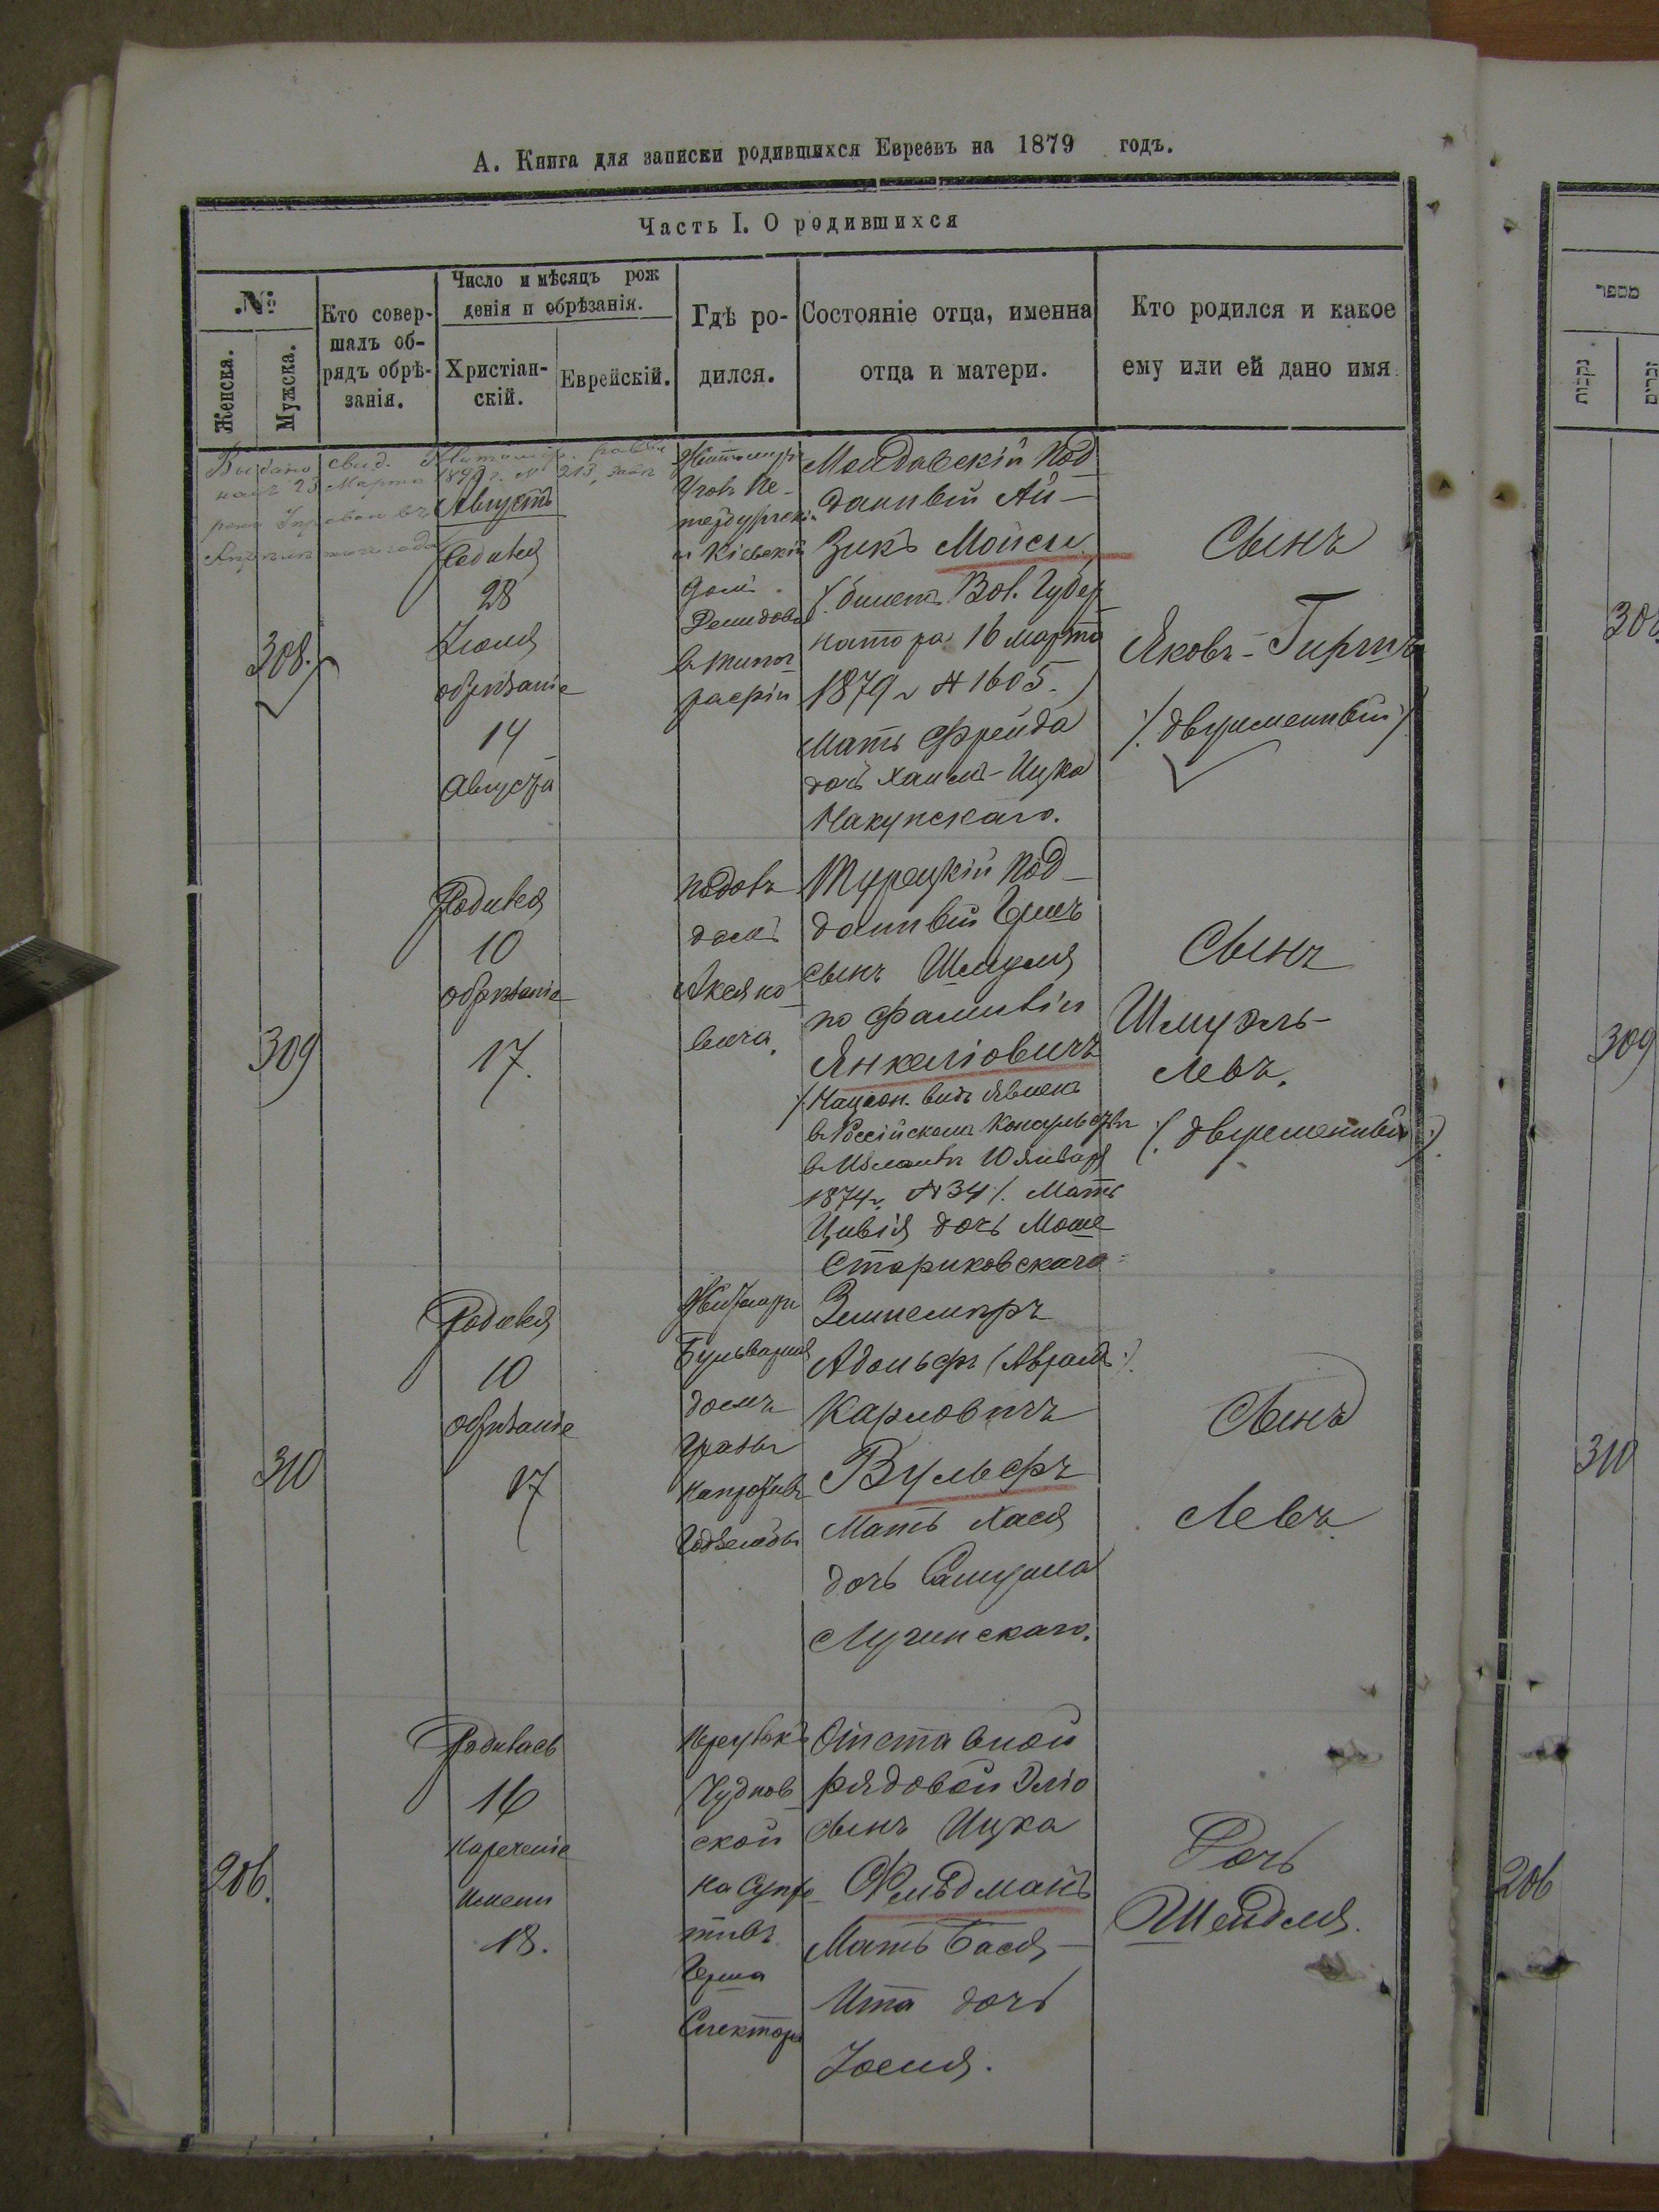 А. Книга для записки родившихся Евреевъ на 1879 годъ.
Часть I. О родившихся
№
Женска.
Мужска.
Кто совер-
шалъ об-
рядъ обрѣ-
занія.
Число и мѣсяцъ рож
денія и обрѣзанія.
Христіан-
скій.
Еврейскій.
Гдѣ ро-
дился.
Состояніе отца, именна
отца и матери.
Кто родился и какое
ему или ей дано имя
Выдано свид. Житомір.
23 Марта 1899 г. № 213,
308.
Августъ
Родився
28
Іюля
обрѣзаніе
14
Августа
Житомиръ
Уголъ Пе-
тербургскій
и Кіевскій
домъ
Демидова
въ типог
рафіи
Молдавскій Под
данный Ай-
зикъ Мойси
(билетъ Вол. Губер
натора 16 марта
1879 г № 1605.)
Мать Фрейда
дочь Хаимъ-Ицка
Накупскаго.
Сынъ
Яковъ-Гиршъ
(двуименный)
309
Родився
10
обрѣзаніе
17.
Подолъ
домъ
Турецкій Под-
данный Гершъ
сынъ Шмуля
по фамиліи
Янкеліовичъ
(Націон. видъ явленъ
в Россійскомъ Консульствѣ
в Измаилѣ 10 Января
1874 г. № 34). Мать
Цивія дочь Моше
Стариковскаго
Сынъ
Шмуэль-
Левъ.
(двуименный).
310
Родився
10
обрѣзаніе
17
Житомиръ
Бульварная
домъ
напротивъ
Адольфъ (Аврамъ).
Карловичъ
Вульфъ
Мать Хася
дочь Самуила
Лугинскаго.
Сынъ
Левъ
206.
Родилась
16
Нареченіе
имени
18.
Переулокъ
Чуднов
ской
на супро
тивъ
Герша
Спектора
Отставной
рядовой Эліо
сынъ Ицка
Фельдманъ
Мать Бася-
Ита дочь
Іоселя.
Дочь
Шейдля.
מספר
נקבות
זכרים
308
309
310
206